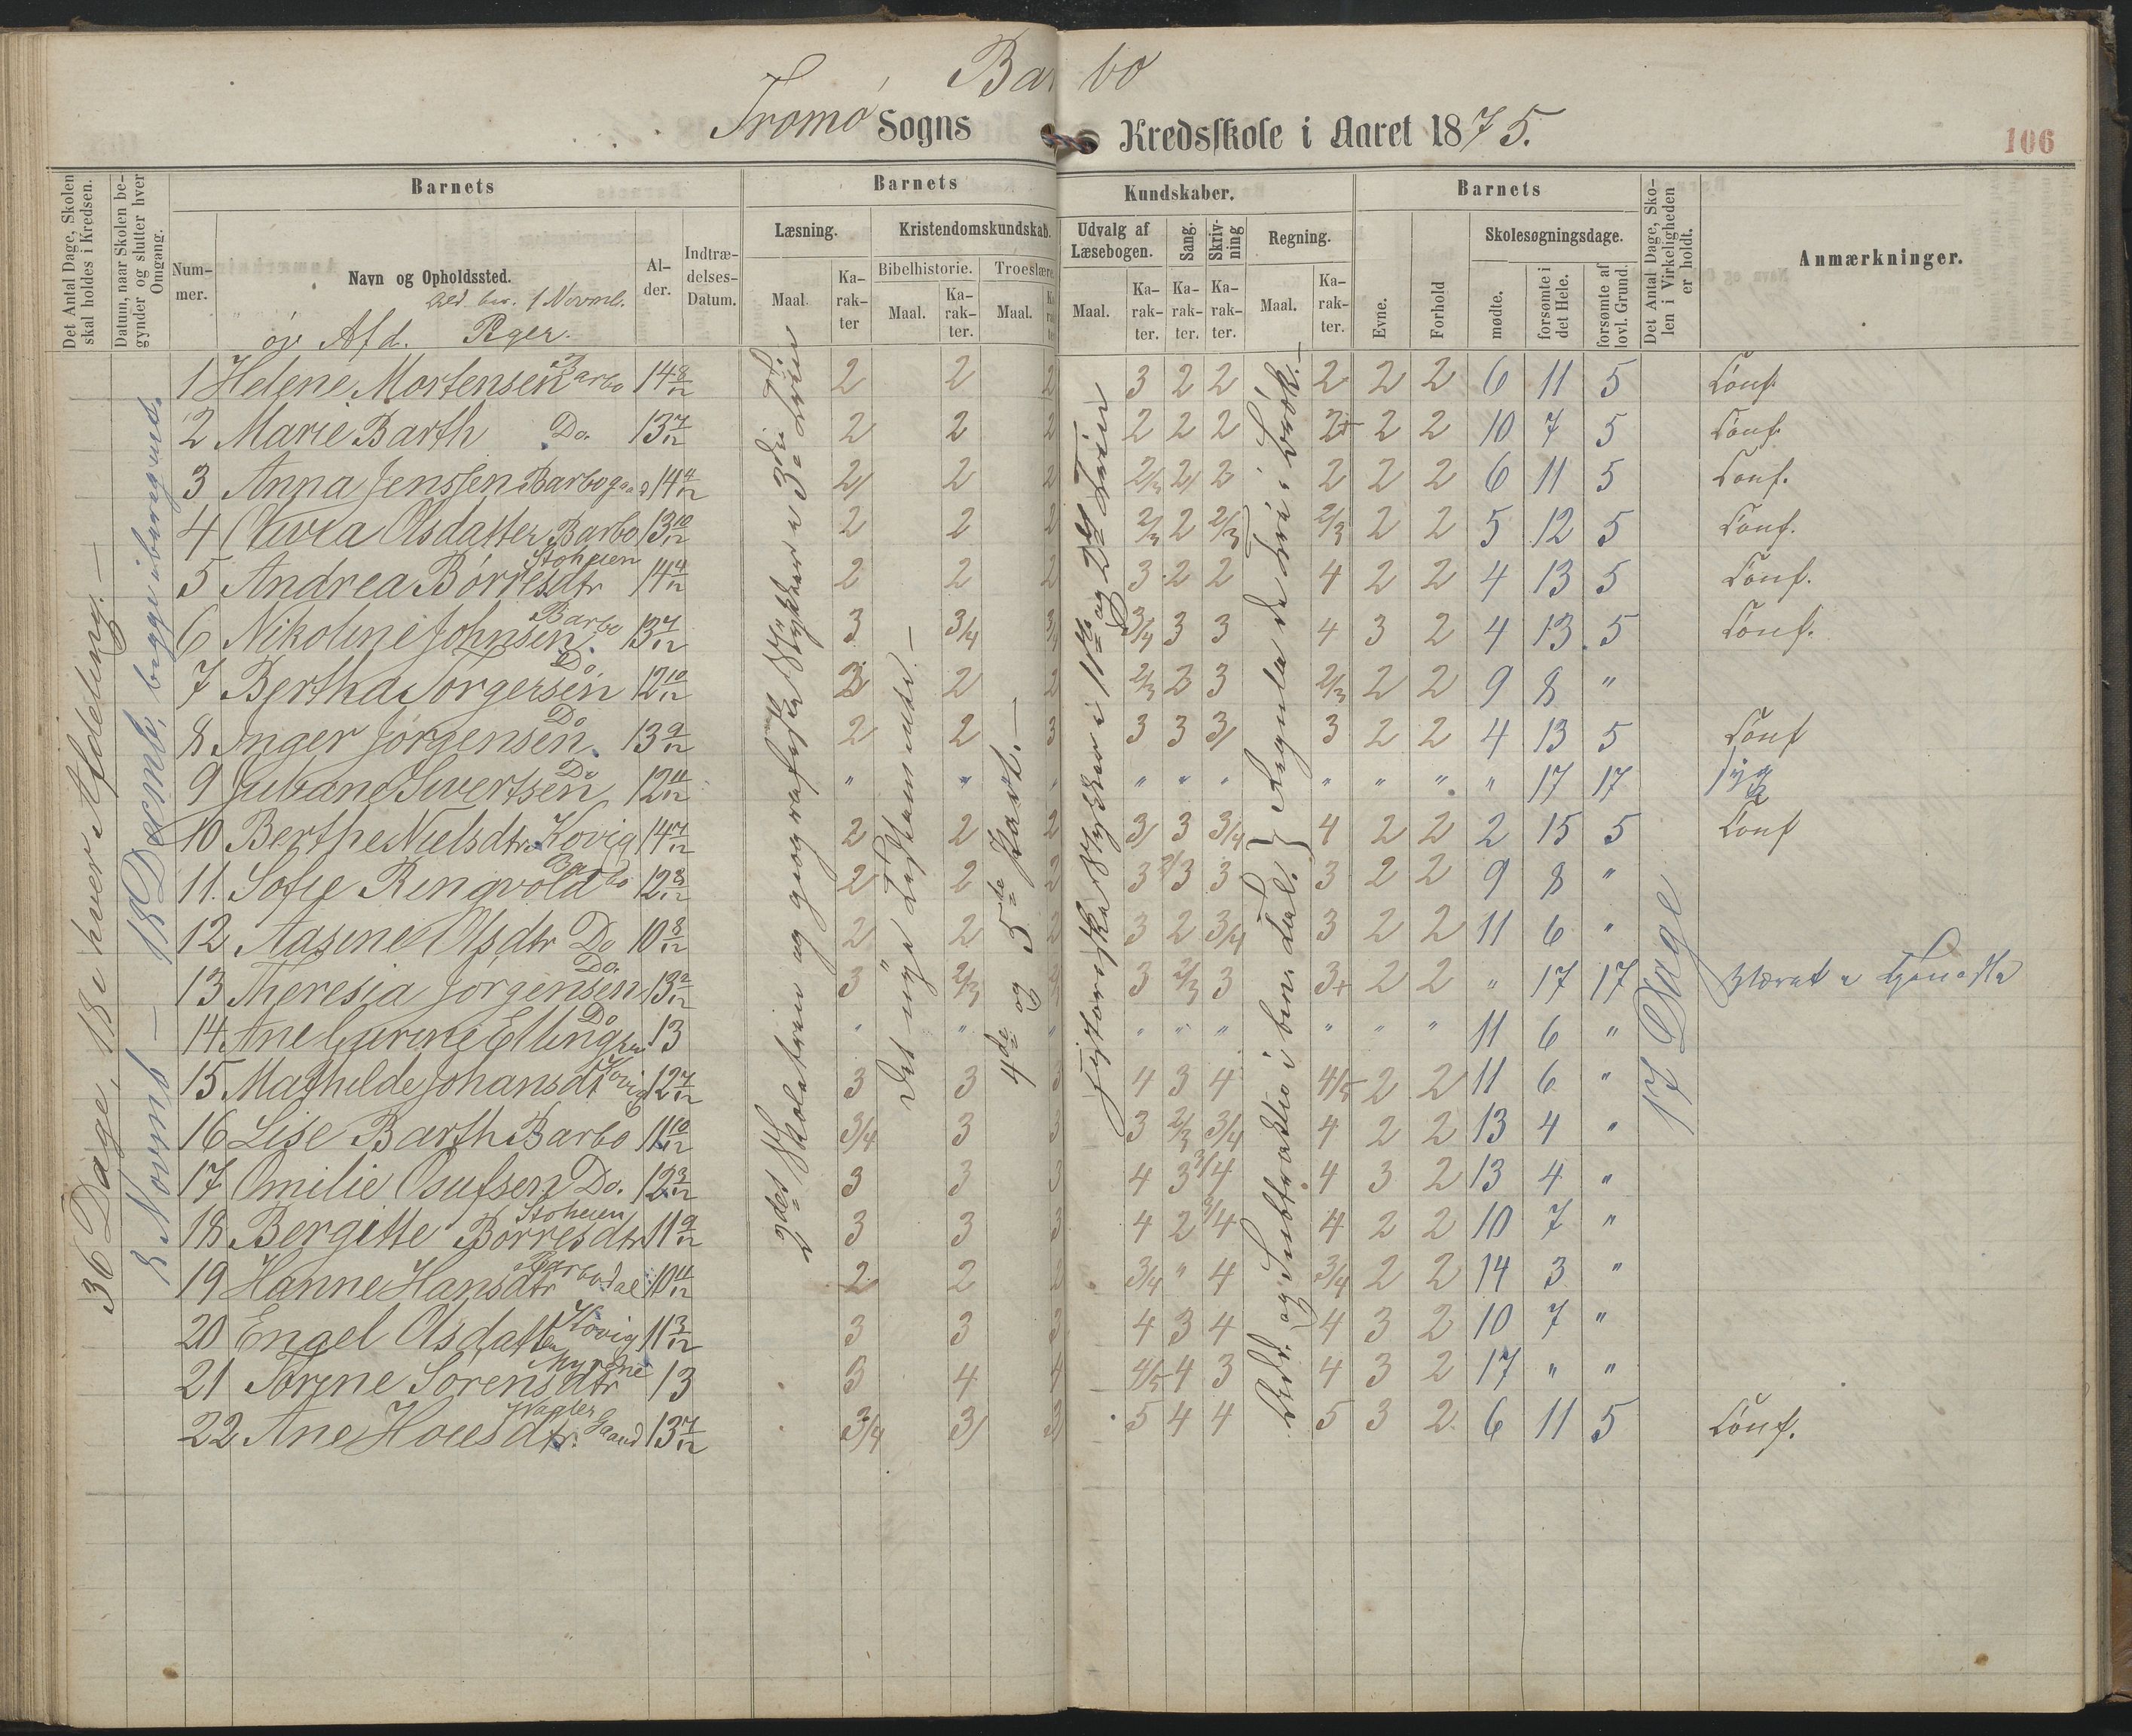 Barbo
Tromø Sogns Kredsskole i Aaret 1875.
106
Det Antal Dage, Skolen skal holdes i Kredsen.
Datum, naar Skolen begynder og slutter hver Omgang.
Barnets
Barnets
Kundskaber.
Barnets
Det Antal Dage, Skolen i Virkeligheden er holdt.
Anmærkninger.
Nummer.
Navn og Opholdssted.
Alder.
Indtrædelses-Datum.
Læsning.
Kristendomskundskab.
Udvalg af Læsebogen.
Sang.
Skrivning
Regning.
Evne.
Forhold
Skolesøgningsdage.
Maal.
Karakter
Bibelhistorie.
Troeslære
Maal.
Karakter.
Maal.
Maal.
Karakter.
Karakter.
Karakter.
Maal.
Karakter.
mødte.
forsømte i det Hele.
forsømte af lovl. Grund.
Ald. ber. 1 Novmb.
øv Afd. Piger.
36 Dage, 18 i hver Afdeling. —
8 Novemb — 18 Decemb, begge iberegnede.
2det Skoletrin og geografiske Stykker i 3die Trin
Det nye Testamente. —
4de og 5te Part. —
historiske Stykker i 1ste og 2det Trin
Regula de tri i Brøk. —
Addi og Subtraktio i ben. Tal.
17 Dage
1 Helene Mortensen Barbo 14 8/12 2 2 2 3 2 2 2 2 2 6 11 5 Conf.
2 Marie Barth Do. 13 7/12 2 2 2 2 2 2 2+ 2 2 10 7 5 Conf.
3 Anna Jenssen Barbogaard 14 4/12 2 2 2 2/3 2 2 2 2 2 6 11 5 Conf.
4 Olivia Olsdatter Barbo 13 10/12 2 2 2 2/3 2 2/3 2/3 2 2 5 12 5 Conf.
5 Andrea Børresdtr Stoheien 14 4/12 2 2 2 3 2 2 4 2 2 4 13 5 Conf.
6 Nikoline Johnsen Barbo 13 7/12 3 3/4 3/4 3/4 3 3 4 3 2 4 13 5 Conf.
7 Bertha Torgersen Do 12 10/12 3 2 2 2/3 2 3 2/3 2 2 9 8 "
8 Inger Jørgensen Do 13 9/12 2 2 3 3 3 3 3 2 2 4 13 5 Conf
9 Juliane Sivertsen Do 12 11/12 " " " " " " " " " " 17 17 syg
10 Berthe Nielsdtr. Kovig 14 7/12 2 2 2 3 3 3/4 4 2 2 2 15 5 Conf
11. Sofie Ringvold Barbo 12 8/12 2 2 2 3 2/3 3 3 2 2 9 8 "
12 Aasine Olsdtr Do 10 8/12 2 2 2 3 2 3/4 3 2 2 11 6 "
13 Theresia Jørgensen Do. 13 2/12 3 2/3 4 3 2/3 3 3+ 2 2 " 17 17 Været i Tjeneste
14 Ane Gurine Ellingsen Do 13 " " " " " " " " " 11 6 "
15 Mathilde Johansdt Kovig 12 7/12 3 3 3 4 3 4 4/5 2 2 11 6 "
16 Lise Barth Barbo 11 10/12 3/4 3 3 3 2/3 3/4 4 2 2 13 4 "
17 Omilie Osufsen Do. 12 3/12 3 3 3 4 3 3/4 4 3 2 13 4 "
18 Bergitte Børresdtr Stoheien 11 9/12 3 3 3 4 2 3/4 4 2 2 10 7 "
19 Hanne Hansdtr Barbodal 10 11/12 2 2 2 3/4 " 4 3/4 2 2 14 3 "
20 Engel Olsdatter Kovig 11 3/12 3 3 3 4 3 4 4 3 2 10 7 "
21 Torine Sørensdtr Myrene 13 3 4 4 4/5 4 3 4 3 2 17 " "
22 Ane Hoiesdtr. 13 7/12 3/4 3 3 5 4 4 5 3 2 6 11 5 Conf.